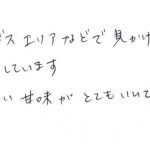 ビスエリアなどで見かけ
しています
い甘味がとてもいいて